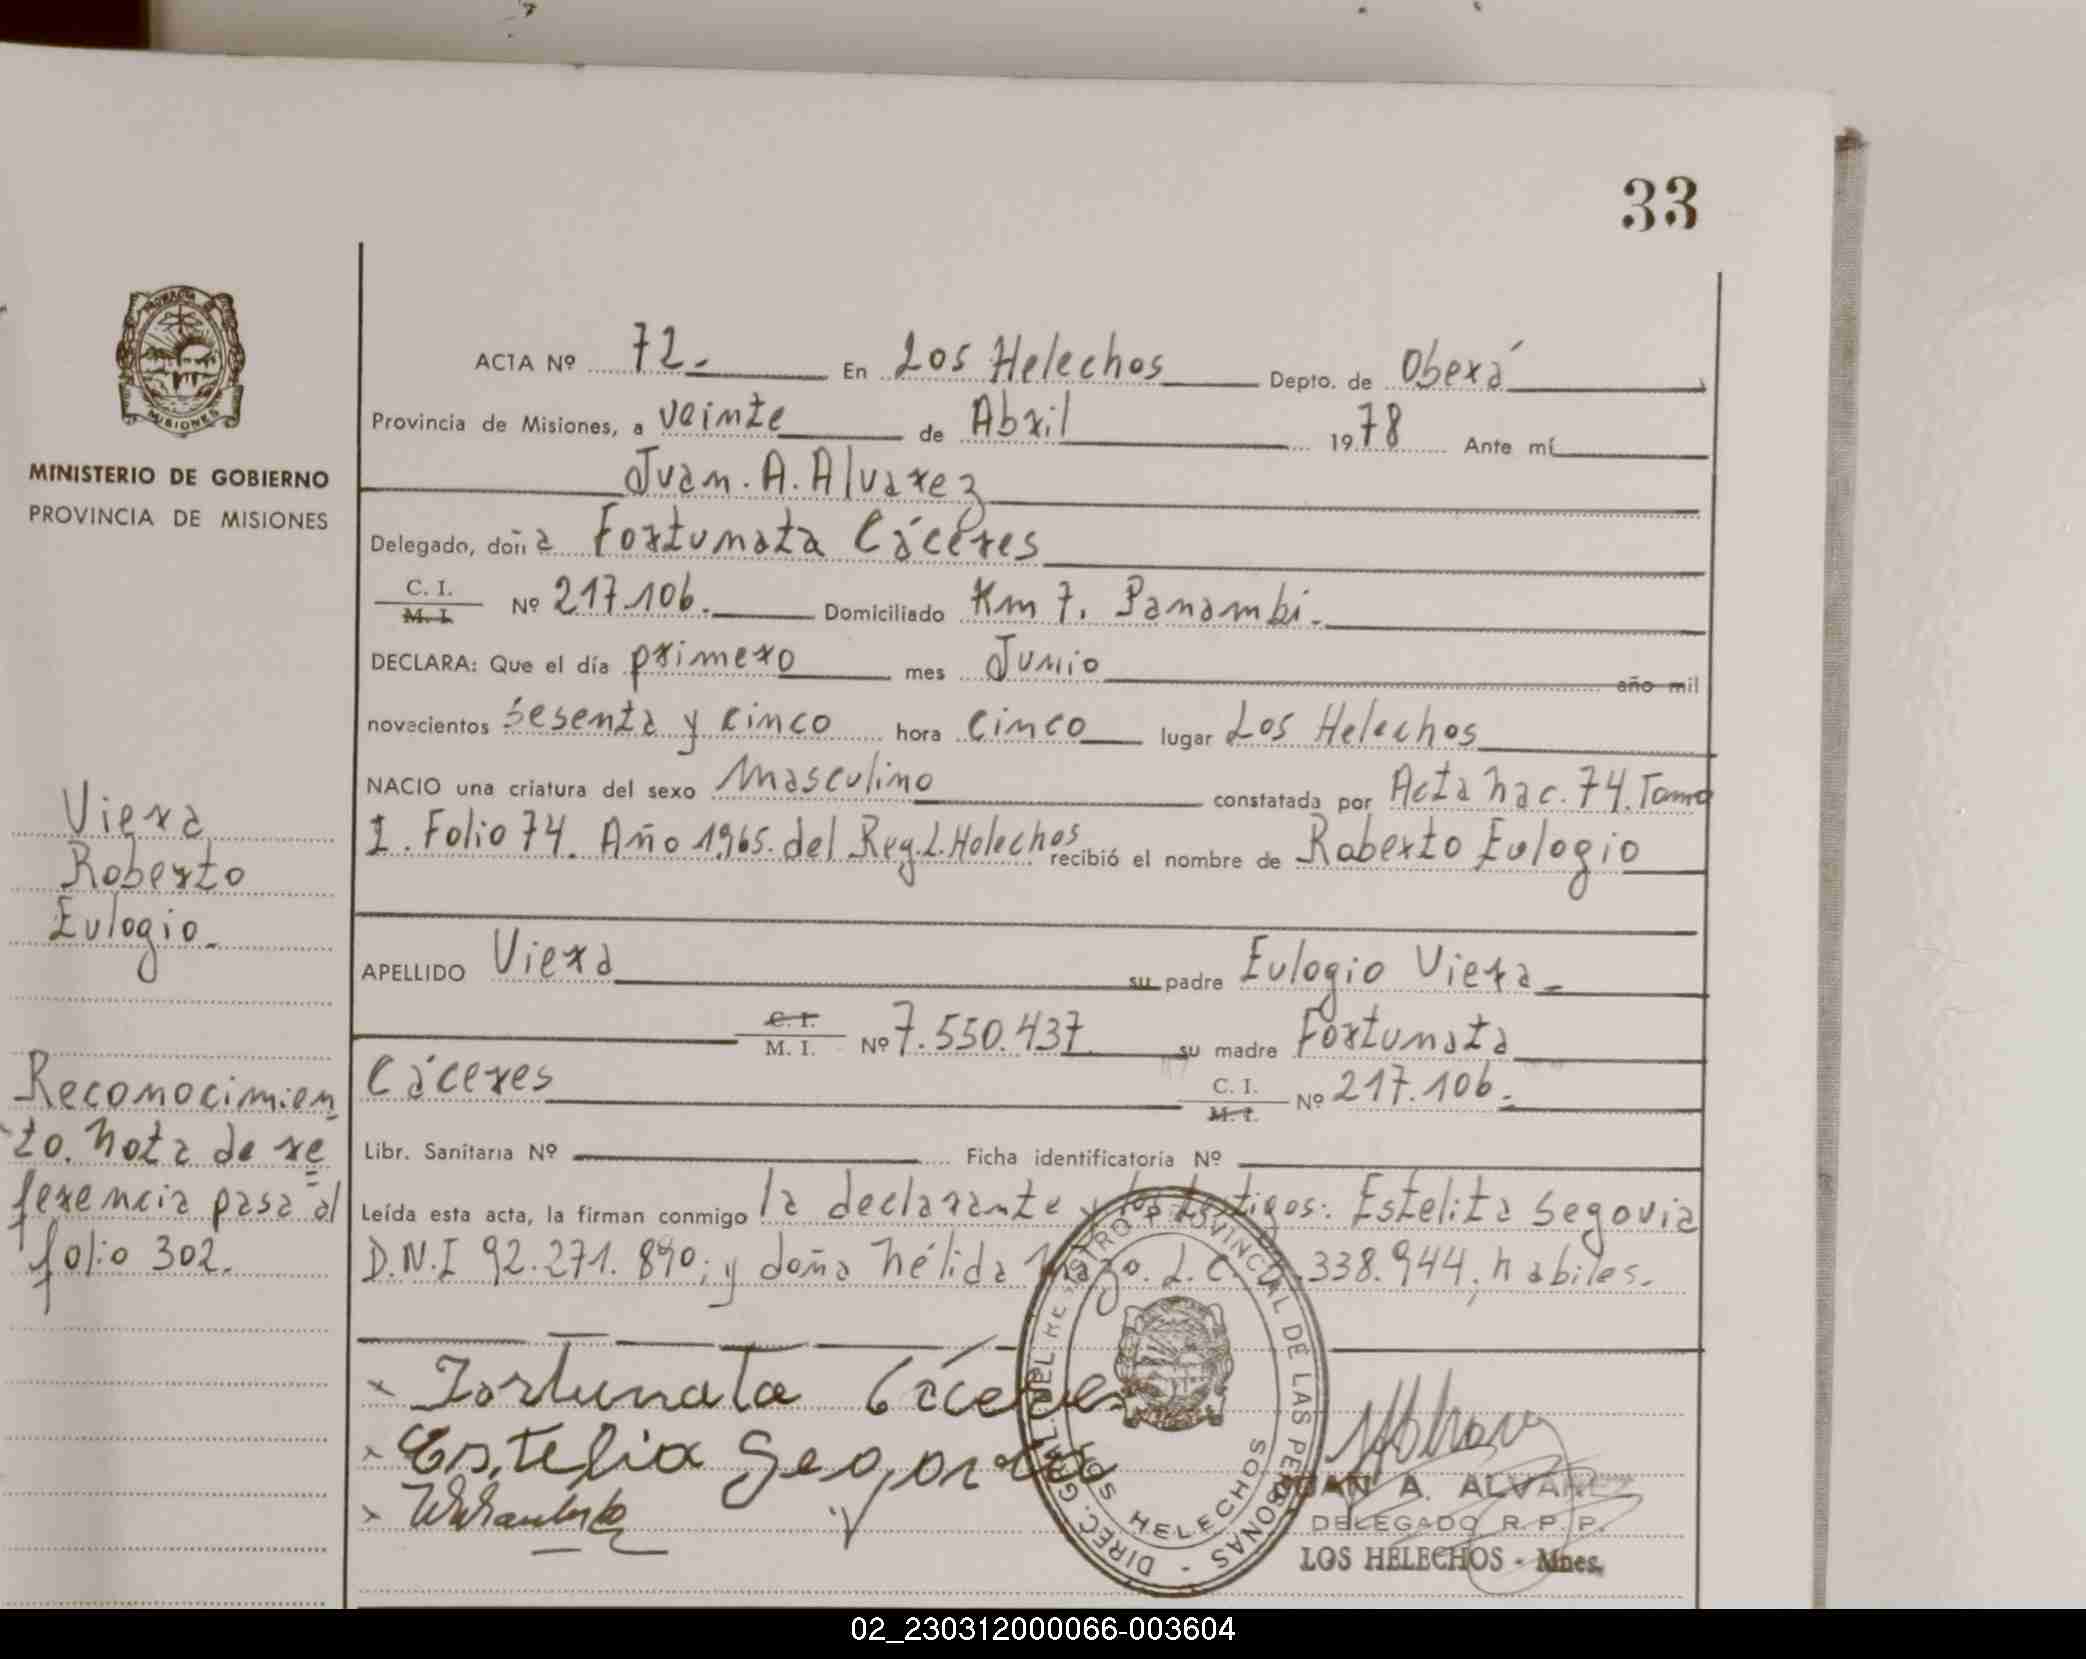 33
MINISTERIO DE GOBIERNO
PROVINCIA DE MISIONES
MISIONES
Viera
Roberto
Eulogio
Reconocimien
to. Nota de re
ferencia pasa al
folio 302.
ACTA Nº 72. En Los Helechos Depto. de Oberá
Provincia de Misiones, a veinte de Abril 1978 Ante mí
Juan. A. Alvarez
Delegado, doña Fortunata Cáceres
C. I. M. I. Nº 217.106. Domiciliado Km 7. Panambi.
DECLARA: Que el día primero mes Junio año mil
novecientos sesenta y cinco hora cinco lugar Los Helechos
NACIO una criatura del sexo Masculino constatada por Acta Nac. 74. Tomo
I. Folio 74. Año 1965. del Reg. L. Helechos recibió el nombre de Roberto Eulogio
APELLIDO Viera su padre Eulogio Viera
C. I. M. I. Nº 7.550.437 su madre Fortunata
Cáceres C. I. M. I. Nº 217.106.
Libr. Sanitaria Nº Ficha identificatoria Nº
Leída esta acta, la firman conmigo la declarante y los testigos: Estelita Segovia
D.N.I 92.271.890; y doña Nélida L.C. .338.944, habiles.
Fortunata Cáceres
Estelia Segovia
DIREC. GRAL. DEL REGISTRO PROVINCIAL DE LAS PERSONAS
LOS HELECHOS
JUAN A. ALVAREZ
DELEGADO R. P. P.
LOS HELECHOS - Mnes.
02_230312000066-003604